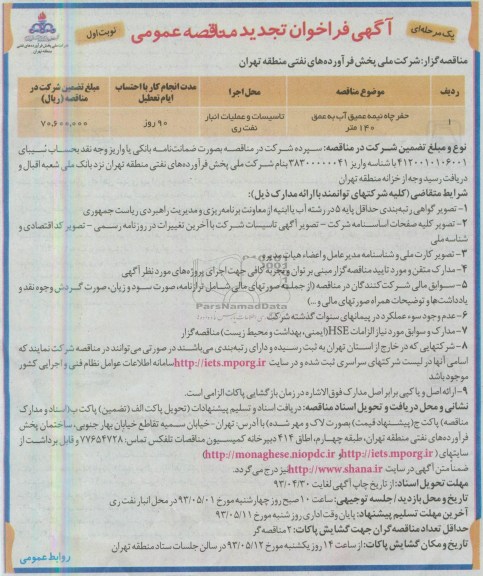 آگهی فراخوان تجدید مناقصه عمومی
یک مرحله‌ای
نوبت اول
مناقصه گزار: شرکت ملی پخش فرآورده‌های نفتی منطقه تهران
ردیف موضوع مناقصه محل اجرا مدت انجام کار با احتساب ایام تعطیل مبلغ تضمین شرکت در مناقصه (ریال)
۱ حفر چاه نیمه عمیق آب به عمق ۱۴۰ متر تاسیسات و عملیات انبار نفت ری ۹۰ روز ۷۰,۶۰۰,۰۰۰
نوع و مبلغ تضمین شرکت در مناقصه: سپرده شرکت در مناقصه بصورت ضمانت‌نامه بانکی یا واریز وجه نقد بحساب شیبای
۴۱۲۰۰۱۰۱۰۶۰۰۱ با شناسه واریز ۳۸۳۰۰۰۰۰۰۴۱ بنام شرکت ملی پخش فرآورده‌های نفتی منطقه تهران نزد بانک ملی شعبه اقبال و
دریافت رسید وجه از خزانه منطقه تهران
شرایط متقاضی (کلیه شرکتهای توانمند با ارائه مدارک ذیل):
۱- تصویر گواهی رتبه‌بندی حداقل پایه ۵ در رشته آب یا ابنیه از معاونت برنامه‌ریزی و مدیریت راهبردی ریاست جمهوری
۲- تصویر کلیه صفحات اساسنامه شرکت - تصویر آگهی تاسیسات شرکت با آخرین تغییرات در روزنامه رسمی - تصویر کد اقتصادی و
شناسه ملی
۳- تصویر کارت ملی و شناسنامه مدیرعامل و اعضاء هیات مدیره
۴- مدارک متقن و مورد تایید مناقصه گزار مبنی بر توان و تجربه کافی جهت اجرای پروژه‌های مورد نظر آگهی
۵- سوابق مالی شرکت کنندگان در مناقصه (از جمله صورتهای مالی شامل ترازنامه، صورت سود و زیان، صورت گردش وجوه نقد و
یادداشت‌ها و توضیحات همراه صورتهای مالی و ...)
۶- عدم وجود سوء عملکرد در پیمانهای سنوات گذشته شرکت
۷- مدارک و سوابق مورد نیاز الزامات HSE (ایمنی، بهداشت و محیط زیست) مناقصه گزار
۸- شرکتهایی که در خارج از استان تهران به ثبت رسیده و دارای رتبه‌بندی می‌باشند در صورتی می‌توانند در مناقصه شرکت نمایند که
اسامی آنها در لیست شرکتهای سراسری ثبت شده و در سایت http://iets.mporg.ir سامانه اطلاعات عوامل نظام فنی و اجرایی کشور
موجود باشد
۹- ارائه اصل و یا کپی برابر اصل مدارک فوق الاشاره در زمان بازگشایی پاکات الزامی است.
نشانی و محل دریافت و تحویل اسناد مناقصه: دریافت اسناد و تسلیم پیشنهادات (تحویل پاکت الف (تضمین) پاکت ب (اسناد و مدارک
مناقصه) پاکت ج (پیشنهاد قیمت) بصورت لاک و مهر شده) با آدرس: تهران - خیابان سمیه تقاطع خیابان بهار جنوبی، ساختمان پخش
فرآورده‌های نفتی منطقه تهران، طبقه چهارم، اطاق ۴۱۴ دبیرخانه کمیسیون مناقصات تلفکس تماس: ۷۷۶۵۴۷۲۸ و قابل برداشت از
سایتهای (http://iets.mporg.ir و http://monaghese.niopdc.ir)
ضمناً متن آگهی در سایت http://www.shana.ir نیز درج می‌گردد.
مهلت تحویل اسناد: از تاریخ چاپ آگهی لغایت ۹۳/۰۴/۳۰
تاریخ و محل بازدید / جلسه توجیهی: ساعت ۱۰ صبح روز چهارشنبه مورخ ۹۳/۰۵/۰۱ در محل انبار نفت ری
آخرین مهلت تسلیم پیشنهاد: پایان وقت اداری روز شنبه مورخ ۹۳/۰۵/۱۱
حداقل تعداد مناقصه گران جهت گشایش پاکات: ۲ مناقصه گر
تاریخ و مکان گشایش پاکات: از ساعت ۱۴ روز یکشنبه مورخ ۹۳/۰۵/۱۲ در سالن جلسات ستاد منطقه تهران
روابط عمومی
ParsNamadData